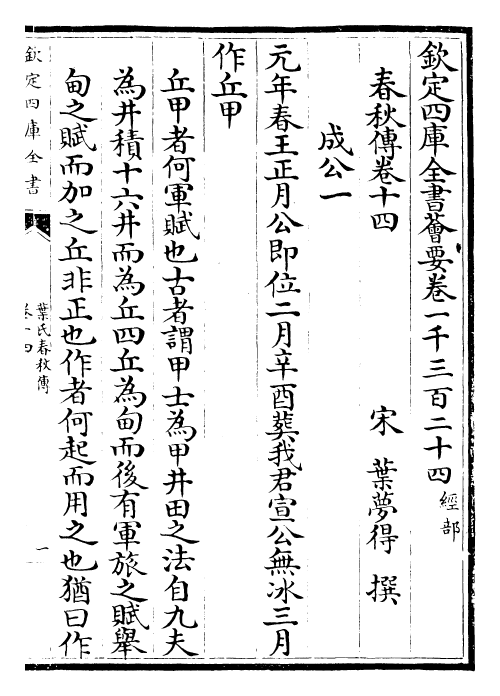 欽定四庫全書薈要卷一千三百二十四
經部
春秋傳卷十四
宋 葉夢得 撰
成公一
元年春王正月公即位二月辛酉葬我君宣公無冰三月
作丘甲
丘甲者何軍賦也古者謂甲士為甲井田之法自九夫
為井積十六井而為丘四丘為甸而後有軍旅之賦舉
甸之賦而加之丘非正也作者何起而用之也猶曰作
欽定四庫全書
葉氏春秋傳
卷十四
一